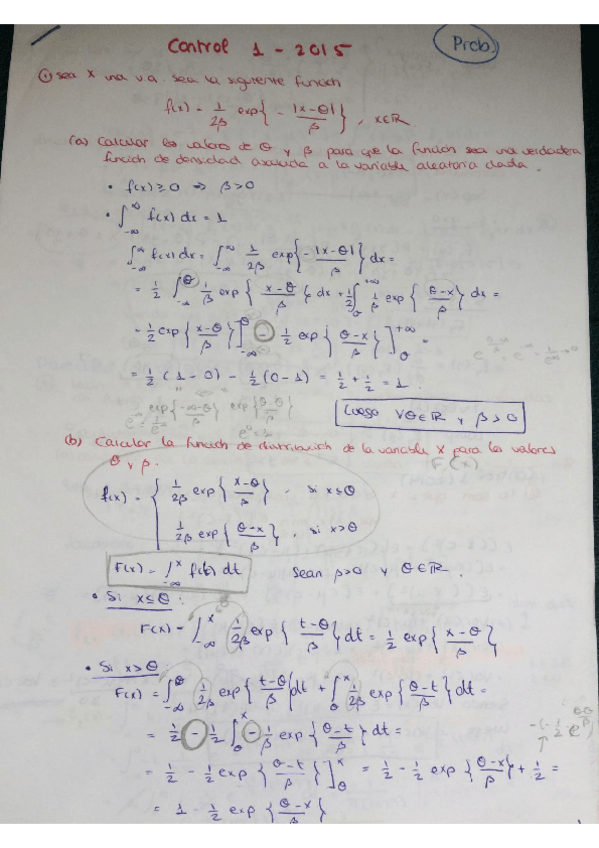 Control 1 - 2015
Prob.
① sea X una v.a. sea la siguiente función
f(x) = 1/2β exp{ - |x-θ|/β }, x∈ℝ
(a) Calcular los valores de θ y β para que la función sea una verdadera
función de densidad asociada a la variable aleatoria dada.
• f(x) ≥ 0 ⇒ β>0
• ∫_{-∞}^{∞} f(x) dx = 1
∫_{-∞}^{∞} f(x) dx = ∫_{-∞}^{∞} 1/2β exp{ - |x-θ|/β } dx =
= 1/2 ∫_{-∞}^{θ} 1/β exp{ x-θ/β } dx + 1/2 ∫_{θ}^{+∞} 1/β exp{ θ-x/β } dx =
= 1/2 exp{ x-θ/β } ]_{-∞}^{θ} - 1/2 exp{ θ-x/β } ]_{θ}^{+∞} =
= 1/2 (1-0) - 1/2 (0-1) = 1/2 + 1/2 = 1
Luego ∀θ∈ℝ y β>0
(b) Calcular la función de distribución de la variable X para los valores
θ y β.
F(x)
f(x) = { 1/2β exp{ x-θ/β }, si x≤θ
1/2β exp{ θ-x/β }, si x>θ
F(x) = ∫_{-∞}^{x} f(t) dt
Sean β>0 y θ∈ℝ.
• Si x≤θ:
F(x) = ∫_{-∞}^{x} 1/2β exp{ t-θ/β } dt = 1/2 exp{ x-θ/β }
• Si x>θ:
F(x) = ∫_{-∞}^{θ} 1/2β exp{ t-θ/β } dt + ∫_{θ}^{x} 1/2β exp{ θ-t/β } dt =
= 1/2 - 1/2 ∫_{θ}^{x} - 1/β exp{ θ-t/β } dt =
= 1/2 - 1/2 exp{ θ-t/β } ]_{θ}^{x} = 1/2 - 1/2 exp{ θ-x/β } + 1/2 =
= 1 - 1/2 exp{ θ-x/β }